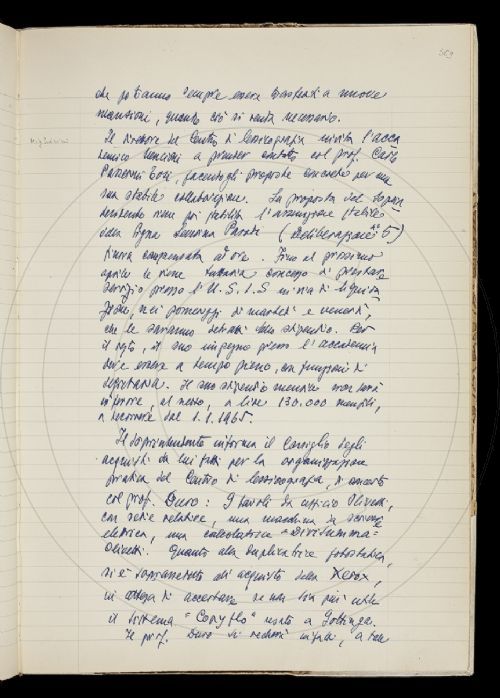 che potranno sempre essere trasferiti a nuove
mansioni, quando ciò si renda necessario.
Il Direttore del Centro di lessicografia invita l'acca
demico Nencioni a prender contatto col prof. Carlo
Passerini Tosi, facendogli proposte concrete per una
sua stabile collaborazione. La proposta del sopra
intendente viene poi stabilita l'assunzione stabile
della Signa Severina Parodi (Deliberazione n° 5)
finora compensata ad ore. Fino al prossimo
aprile le viene tuttavia concesso di prestare
servizio presso l'U.S.I.S in via di liquida
zione, nei pomeriggi di martedì e venerdì,
che le saranno detratti dallo stipendio. Per
il resto, il suo impegno presso l'accademia
deve essere a tempo pieno, con funzioni di
segretaria. Il suo stipendio mensile non sarà
inferiore, al netto, a lire 130.000 mensili,
a decorrere dal 1.1.1965.
Il soprintendente informa il Consiglio degli
acquisti da lui fatti per la organizzazione
pratica del Centro di lessicografia, di concerto
col prof. Duro: 9 tavoli da ufficio Olivetti,
con sedie relative, una macchina da scrivere
elettrica, una calcolatrice "Divisumma"
Olivetti. Quanto alla duplicatrice fotostatica,
si è soprasseduto all'acquisto della Xerox,
in attesa di accertare se non sia più utile
il sistema "Copyflo" usato a Gottinga.
Il prof. Duro si recherà infatti, a tale